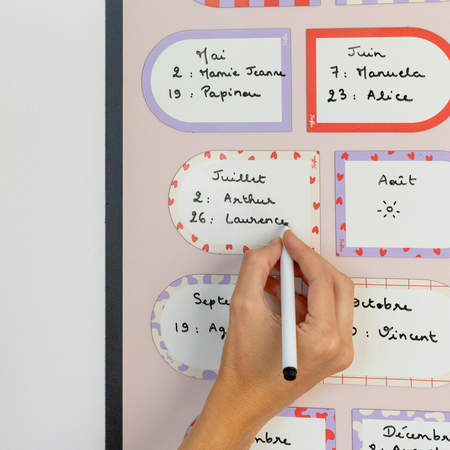 Mai
2 : Mamie Jeanne
19 : Papinou
Juin
7 : Manuela
23 : Alice
Juillet
2 : Arthur
26 : Laurence
Août
Septe
19 : Ag
Octobre
: Vincent
bre
Décembre